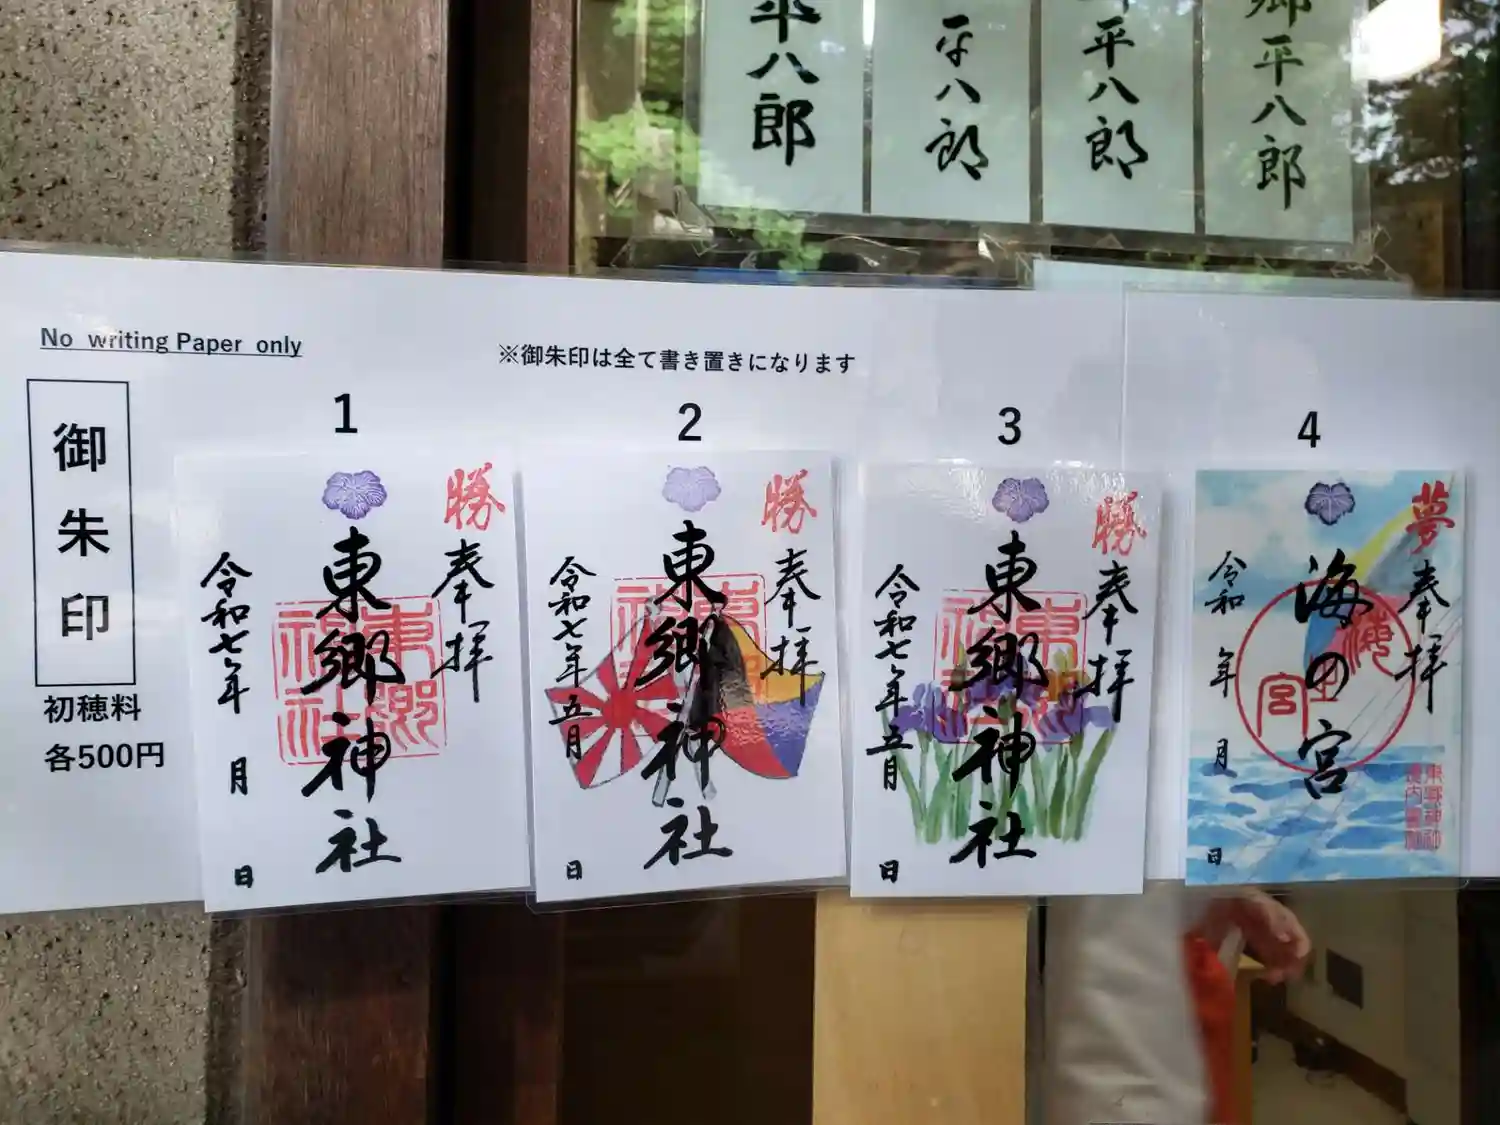 平八郎
平八郎
平八郎
郷平八郎
No writing Paper only
※御朱印は全て書き置きになります
御朱印
初穂料
各500円
1
勝
奉拝
東郷神社
東郷
神社
令和七年 月 日
2
勝
奉拝
東郷神社
令和七年五月 日
3
勝
奉拝
東郷神社
令和七年五月 日
4
夢
奉拝
海の宮
令和 年 月 日